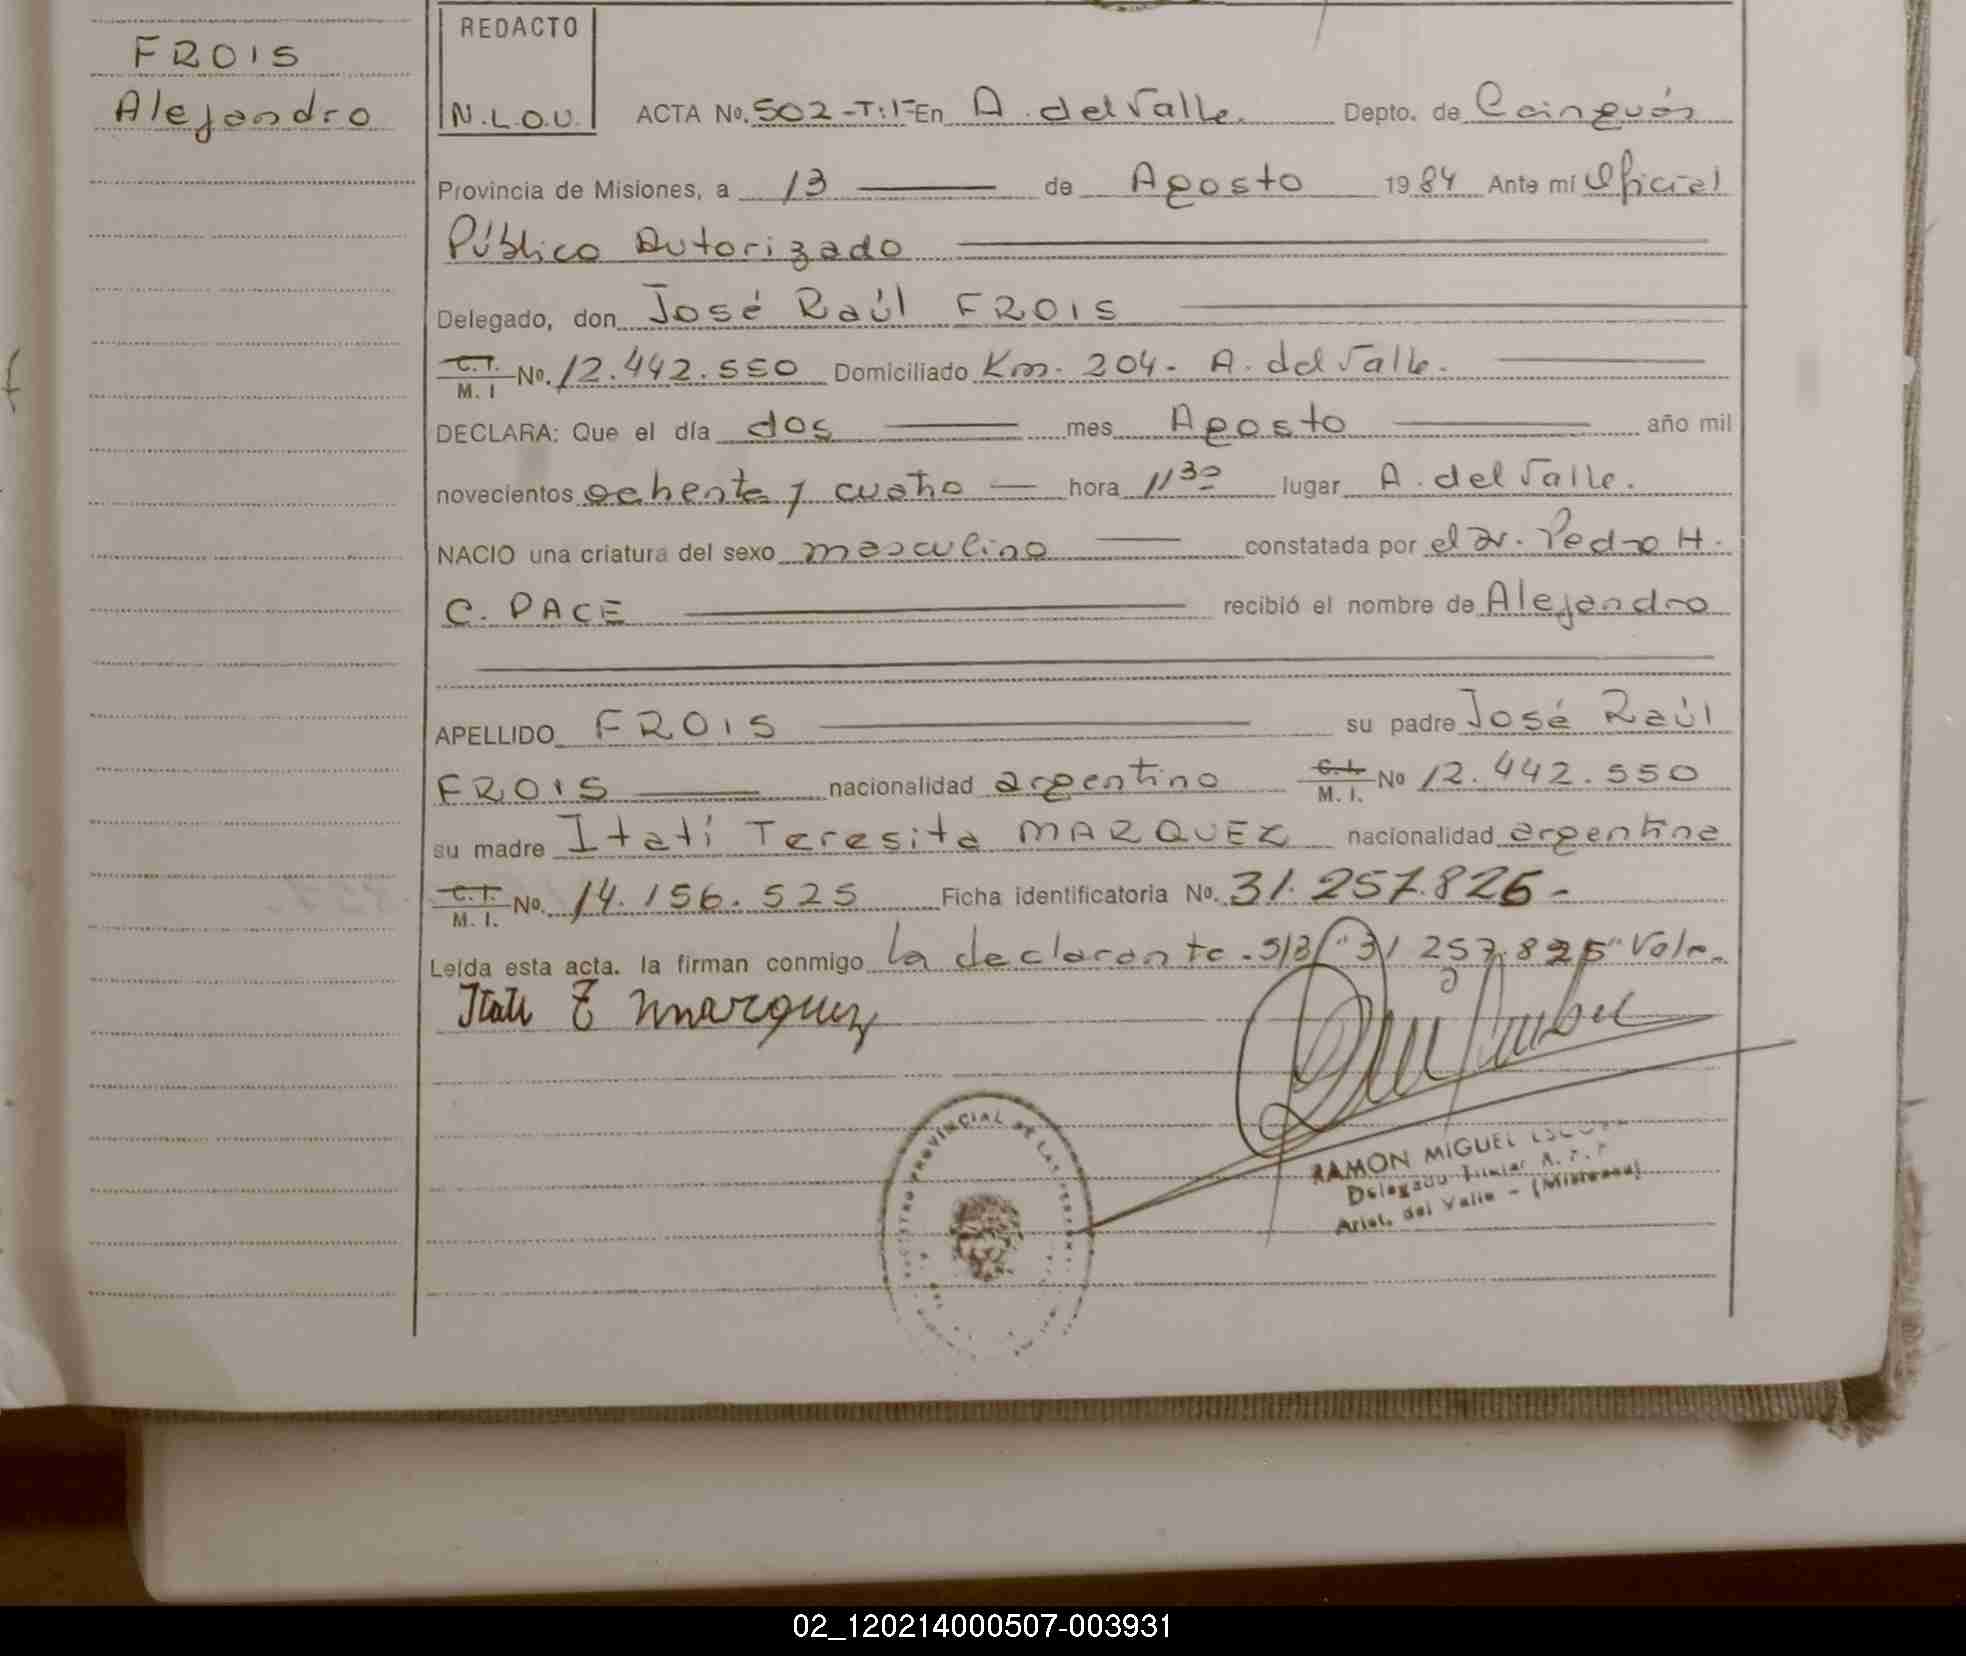 FROIS
Alejandro
REDACTO
N.L.O.U.
ACTA No. 502-T:I- En A. del Valle. Depto. de Cainguás
Provincia de Misiones, a 13 de Agosto 1984 Ante mí Oficial
Público Autorizado
Delegado, don José Raúl FROIS
C.I. M. I No. 12.442.550 Domiciliado Km. 204. A. del Valle.
DECLARA: Que el día dos mes Agosto año mil
novecientos ochenta y cuatro hora 11 30 lugar A. del Valle.
NACIO una criatura del sexo masculino constatada por el Dr. Pedro H.
C. PACE recibió el nombre de Alejandro
APELLIDO FROIS su padre José Raúl
FROIS nacionalidad argentino C.I. M. I. No 12.442.550
su madre Itatí Teresita MARQUEZ nacionalidad argentina
C.I. M. I. No. 14.156.525 Ficha identificatoria No. 31.257.826-
Leída esta acta. la firman conmigo la declarante. S/B "31 257.825" Vale.
Itati T Marquez
PROVINCIAL DE LAS
RAMON MIGUEL
Delegado Titular
Arist. del Valle - (Misiones)
02_120214000507-003931